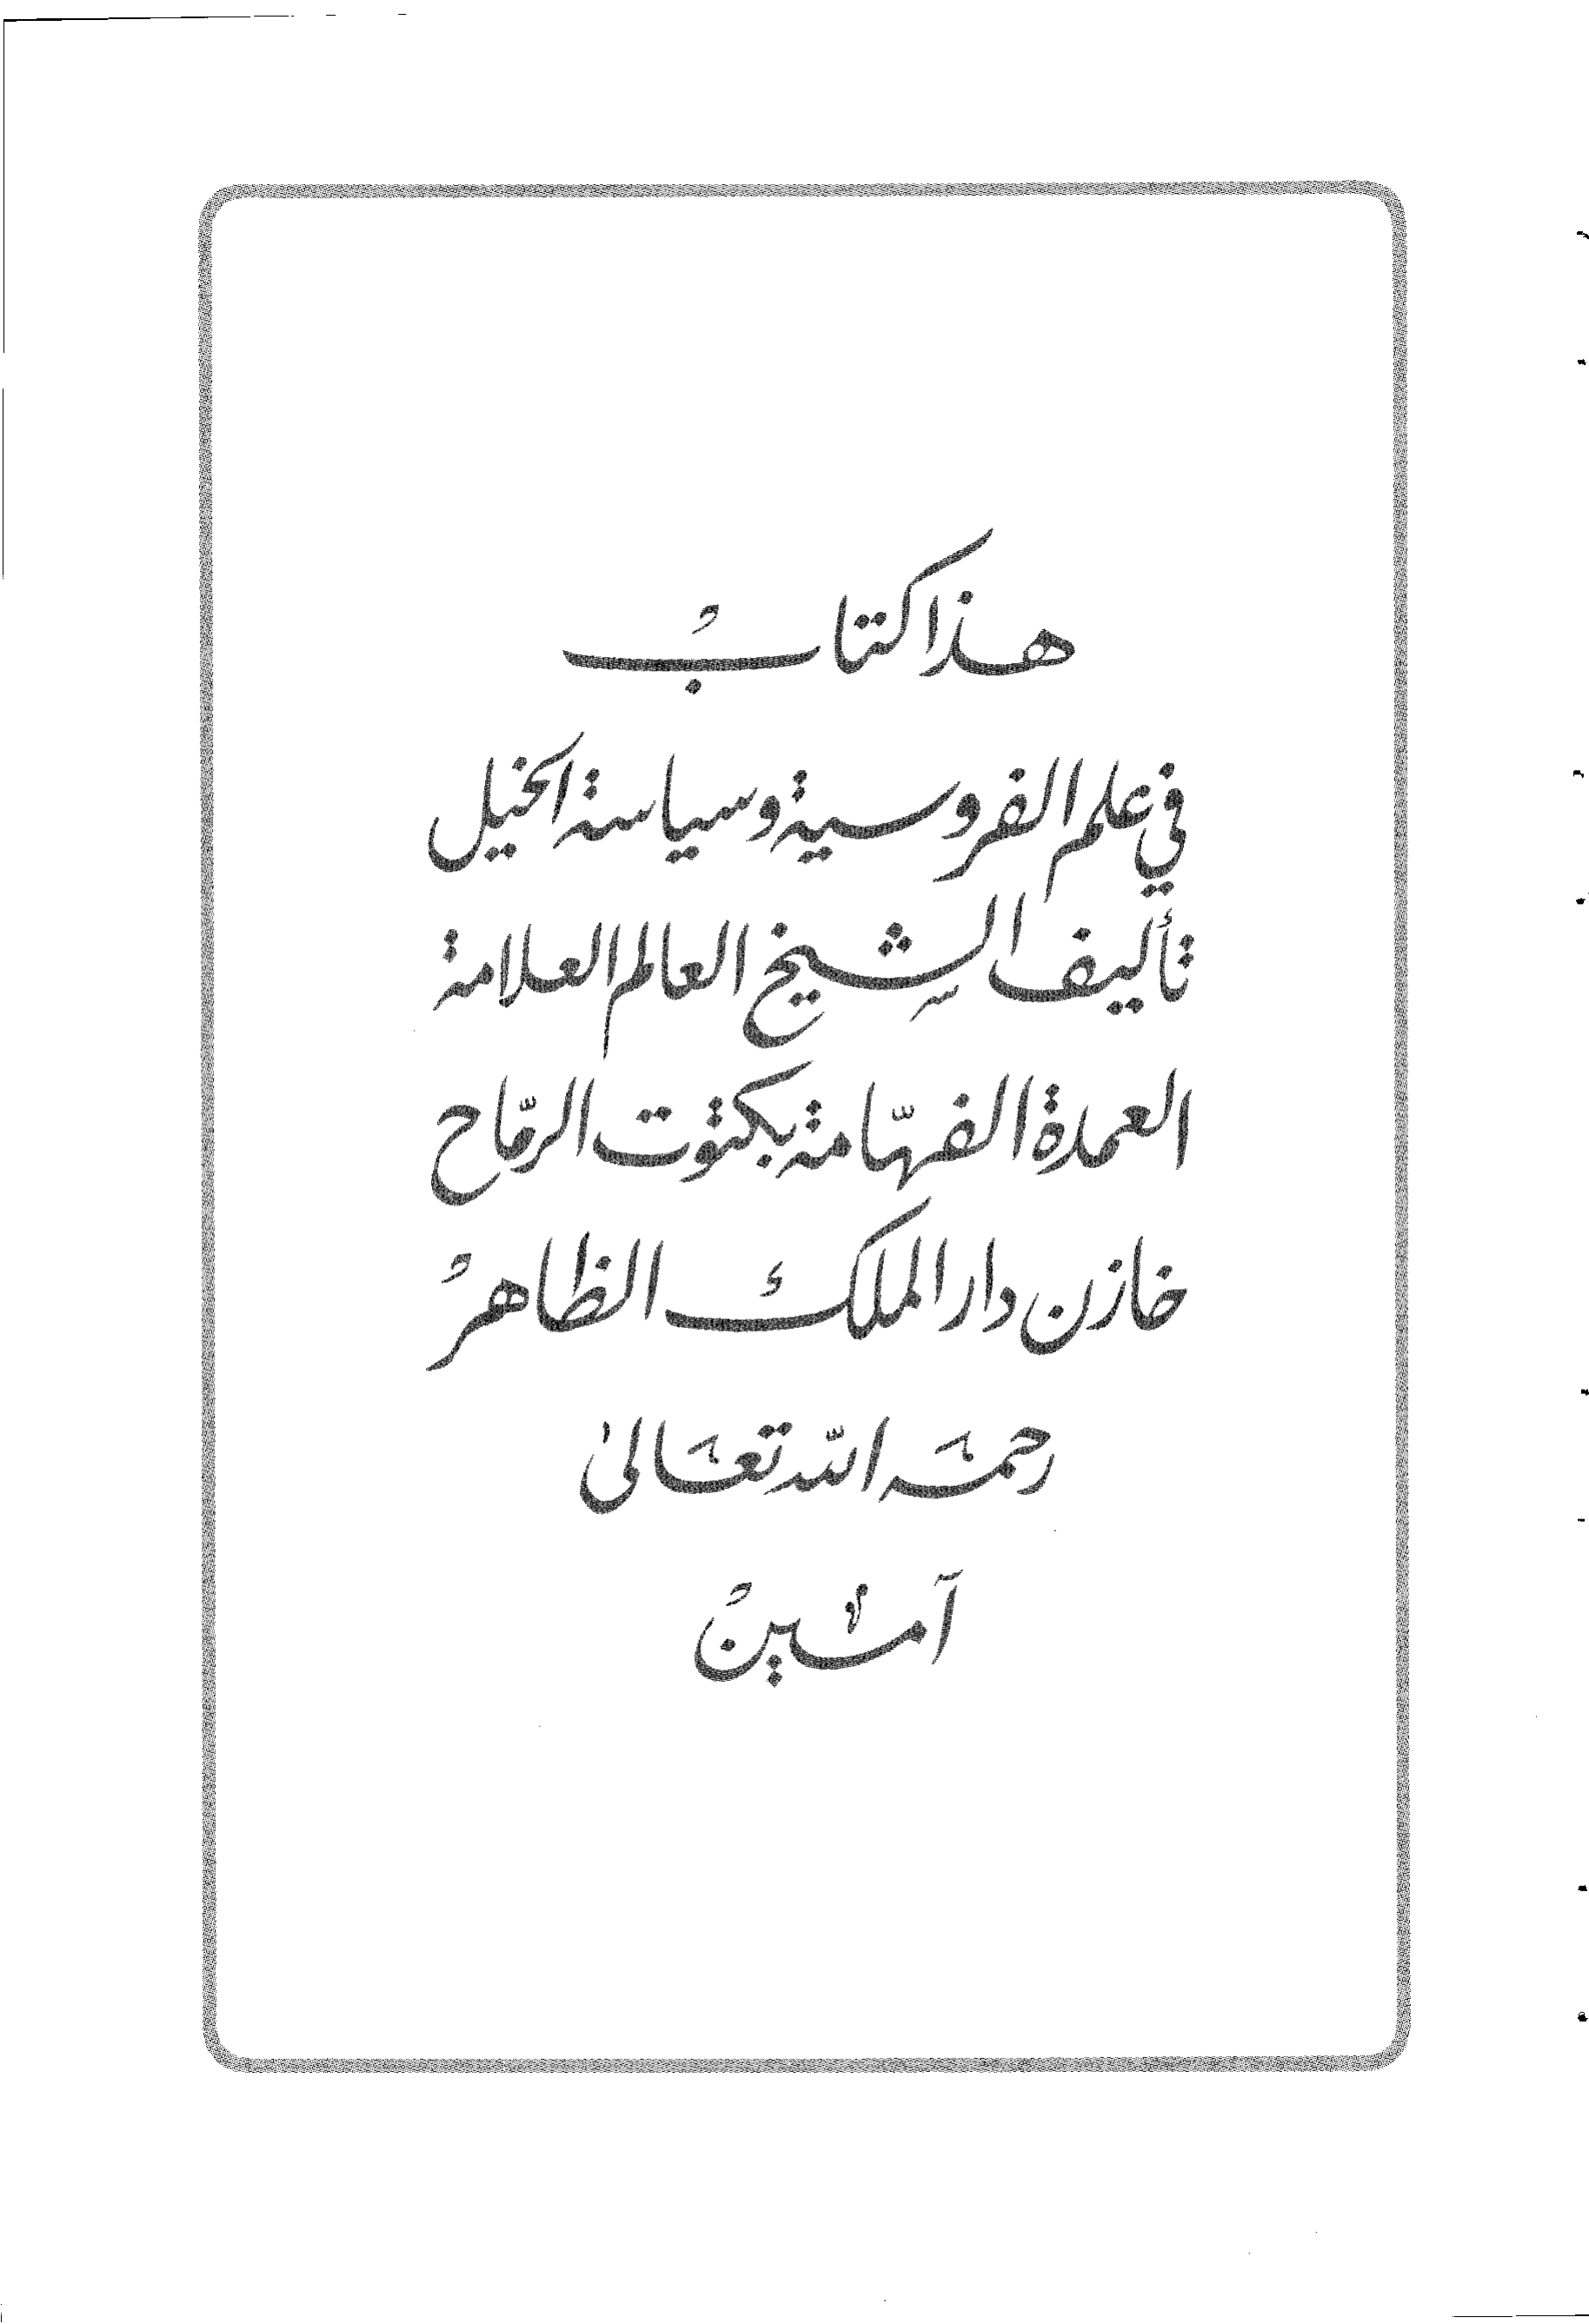 هذا كتاب
في علم الفروسية وسياسة الخيل
تأليف الشيخ العالم العلامة
العمدة الفهّامة بكتوت الرمّاح
خازن دار الملك الظاهر
رحمه الله تعالى
آمين